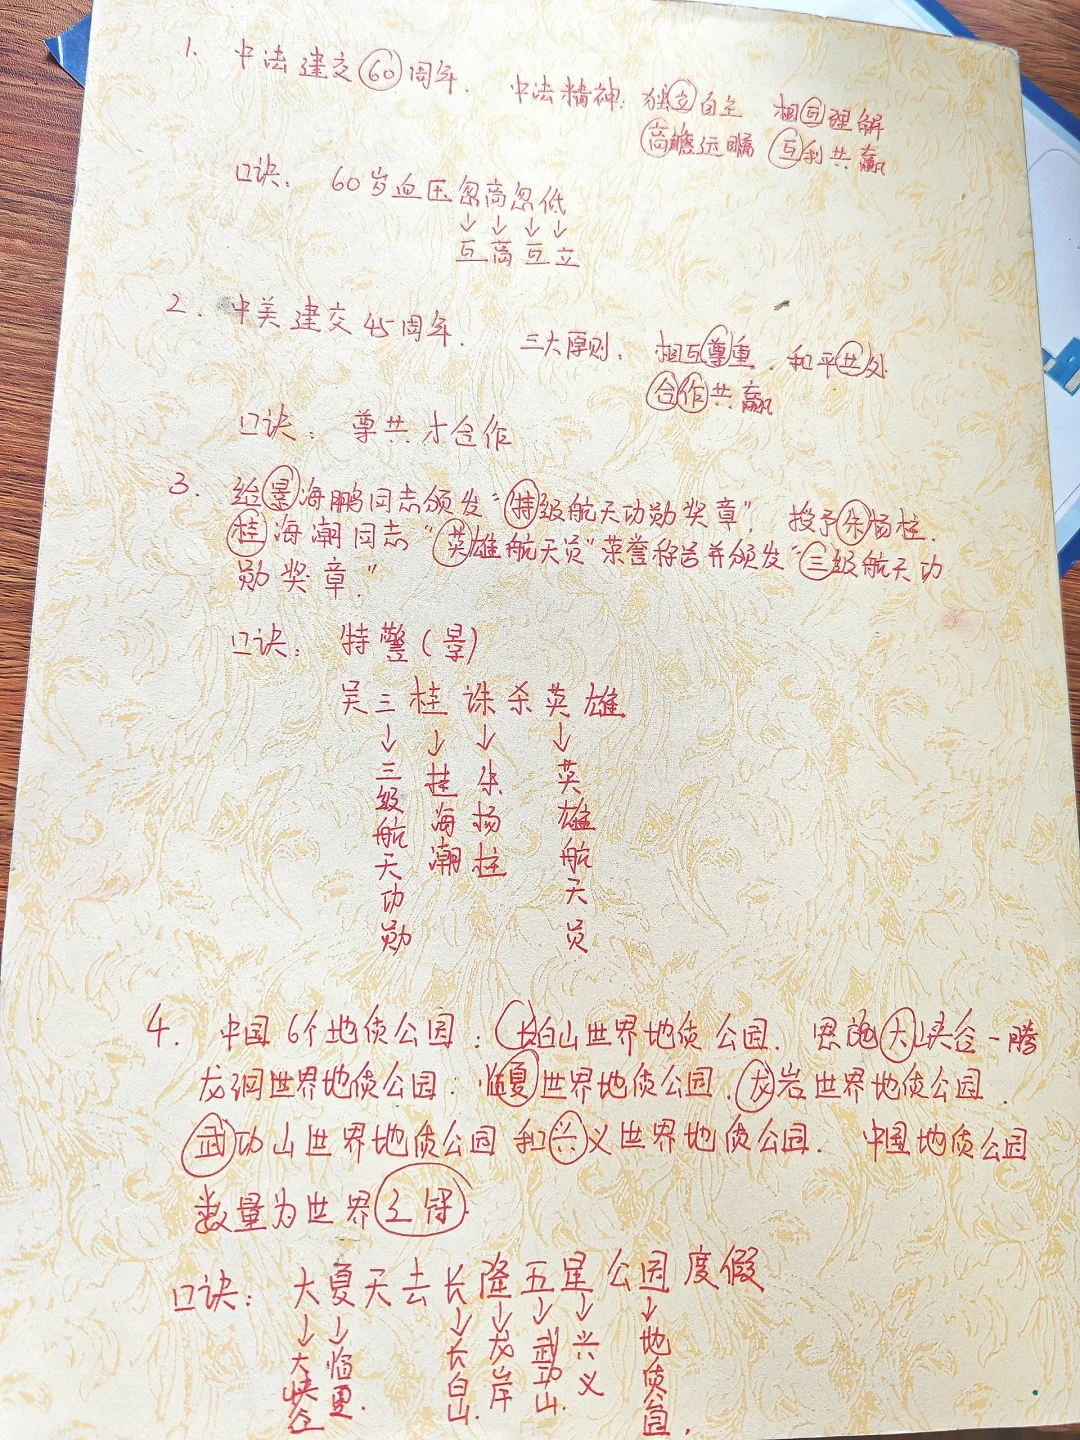 1. 中法建交60周年. 中法精神: 独立自主 相互理解
高瞻远瞩 互利共赢
口诀: 60岁血压忽高忽低
↓ ↓ ↓ ↓
互高互立
2. 中美建交45周年. 三大原则: 相互尊重. 和平共处.
合作共赢
口诀: 尊共才合作
3. 给景海鹏同志颁发“特级航天功勋奖章”. 授予朱杨柱.
桂海潮同志“英雄航天员”荣誉称号并颁发“三级航天功
勋奖章.”
口诀: 特警(景)
吴三桂诛杀英雄
↓ ↓ ↓ ↓
三级航天功勋 桂海潮 朱杨柱 英雄航天员
4. 中国6个地质公园: 长白山世界地质公园. 恩施大峡谷-腾
龙洞世界地质公园: 临夏世界地质公园. 龙岩世界地质公园.
武功山世界地质公园和兴义世界地质公园. 中国地质公园
数量为世界之冠.
口诀: 大夏天去长隆五星公园度假
↓ ↓ ↓ ↓ ↓ ↓ ↓
大峡谷 临夏. 长白山. 龙岸 武功山. 兴义 地质公园.